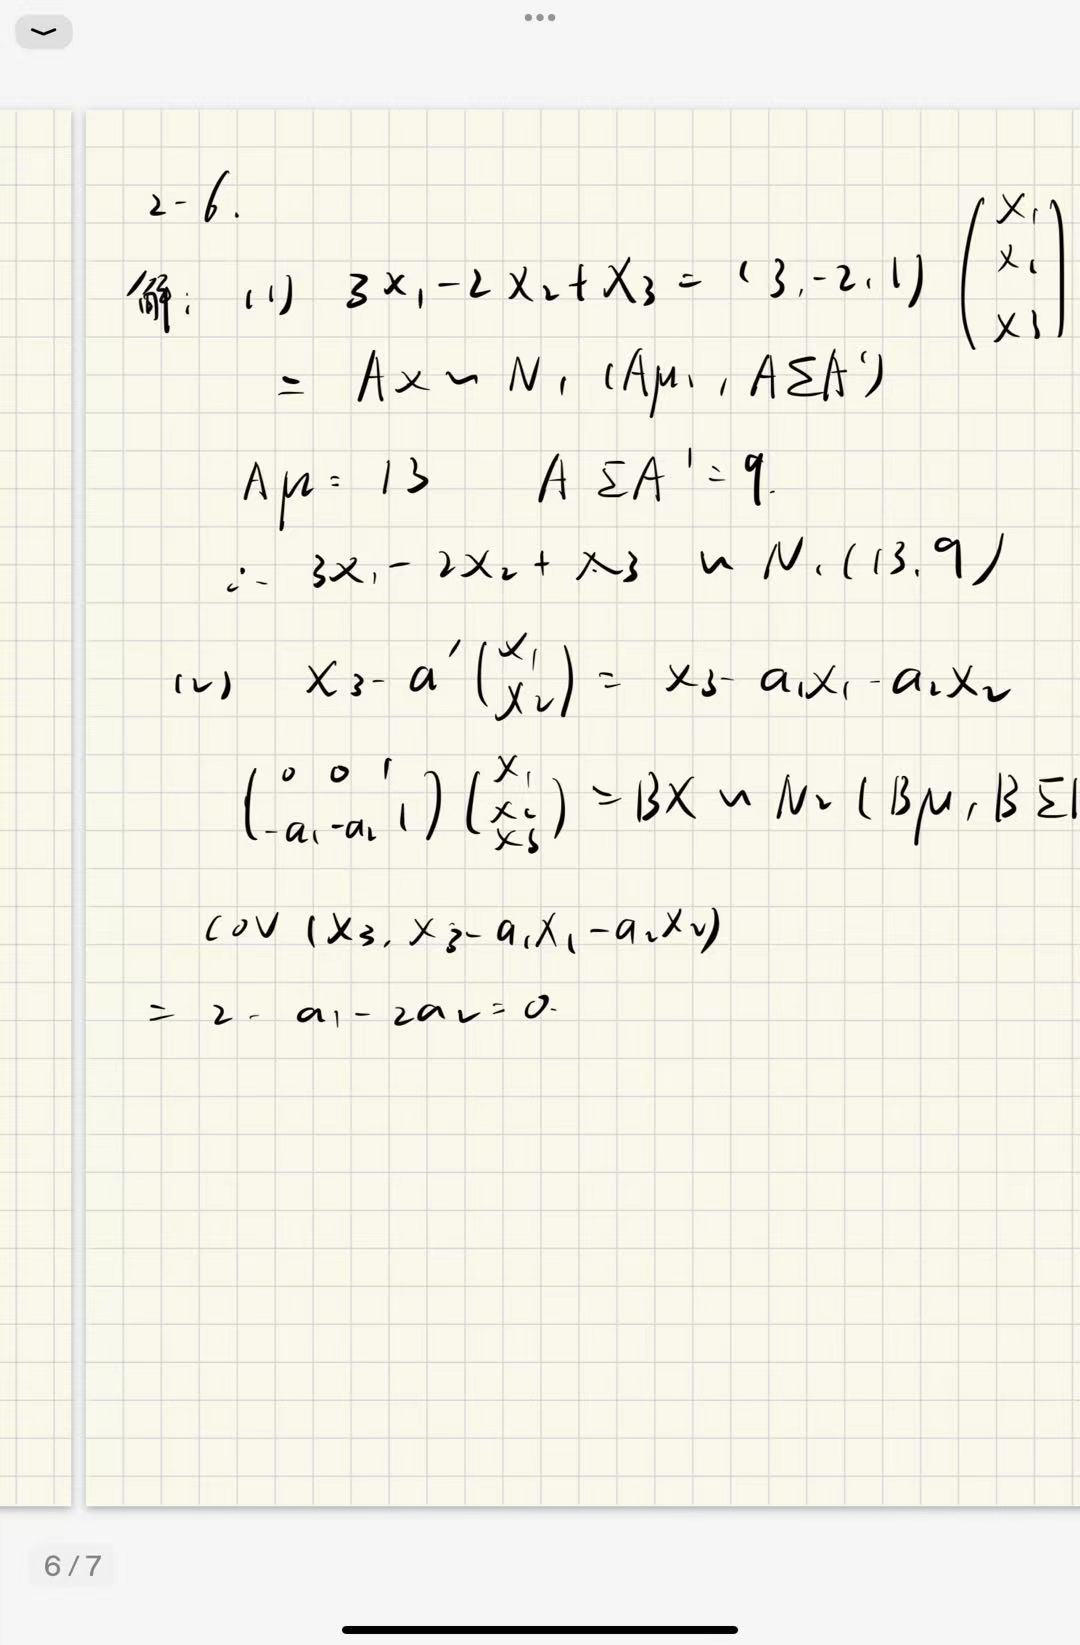 2-6.
解: (1) 3x₁-2x₂+x₃ = (3,-2,1) (x₁ x₂ x₃)
= Ax ~ N₁ (Aμ, AΣA')
Aμ = 13 AΣA' = 9.
∴ 3x₁-2x₂+x₃ ~ N₁(13,9)
(2) x₃-a'(x₁ x₂) = x₃-a₁x₁-a₂x₂
(0 0 1 -a₁ -a₂ 1)(x₁ x₂ x₃) = BX ~ N₂(Bμ, BΣ
cov (x₃, x₃-a₁x₁-a₂x₂)
= 2-a₁-2a₂=0.
6 / 7